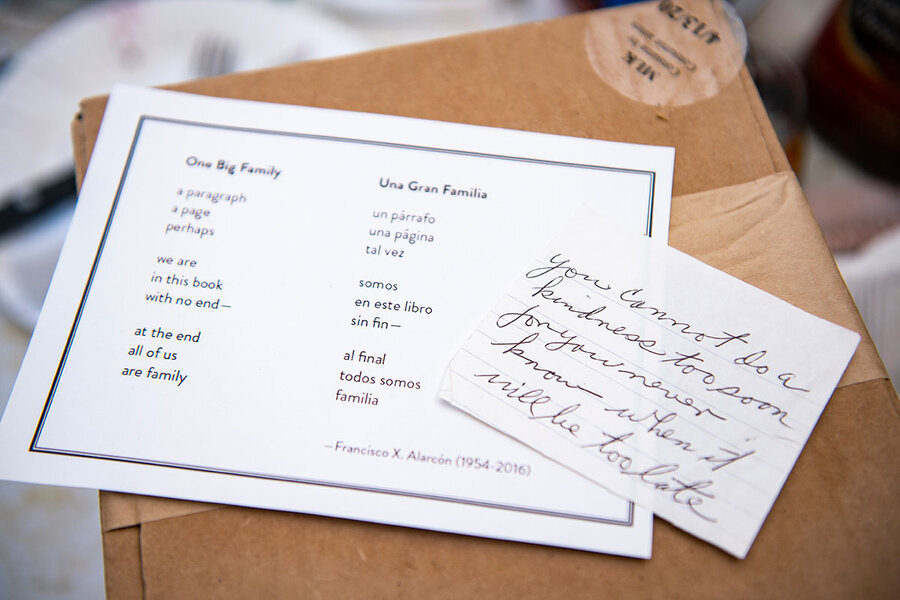 One Big Family
a paragraph
a page
perhaps
we are
in this book
with no end—
at the end
all of us
are family
Una Gran Familia
un párrafo
una página
tal vez
somos
en este libro
sin fin—
al final
todos somos
familia
—Francisco X. Alarcón (1954-2016)
you cannot do a
kindness too soon
for you never
know when it
will be too late
4/13/20